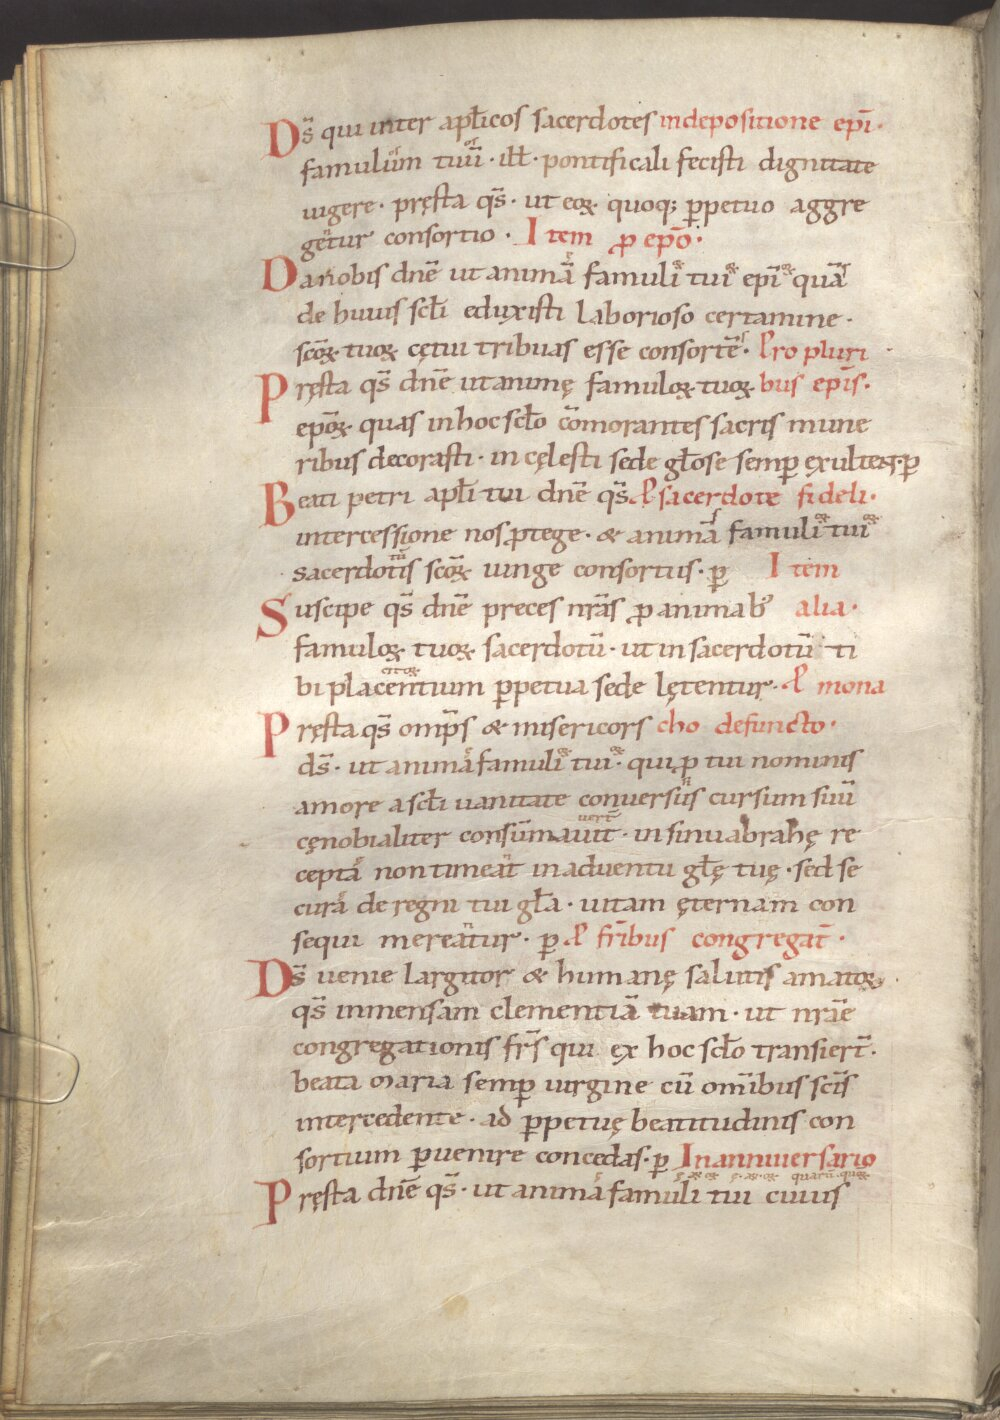 Ds̄ qui inter apl̄icos sacerdotes indepositione epī·
famulum tuū· ill̄· pontificali fecisti dignitate
uigere· pręsta qs̄· ut eoꝝ quoq; ꝑpetuo aggre
getur consortio· Item ꝓ epō·
Da nobis dnē ut animā famuli tui epī quā
de huius scl̄i eduxisti laborioso certamine·
scōꝝ tuoꝝ cętui tribuas esse consortē· Pro pluri
Pręsta qs̄ dnē ut animę famuloꝝ tuoꝝ bus epīs·
epōꝝ quas in hoc scl̄o cōmorantes sacris mune
ribus decorasti· in cęlesti sede gl̄ose semꝑ exultent· ꝑ
Beati petri apl̄i tui dnē qs̄ ꝓ sacerdote fideli·
intercessione nos ꝓtege· & animā famuli tui
sacerdotis scōꝝ iunge consortiis· ꝑ Item
Suscipe qs̄ dnē preces nrās ꝓ animab; alia·
famuloꝝ tuoꝝ sacerdotū· ut in sacerdotū ti
bi placentium ꝑpetua sede lętentur· ꝓ mona
Pręsta qs̄ omp̄s & misericors cho defuncto·
ds̄· ut animā famuli tui· qui ꝑ tui nominis
amore a scl̄i uanitate conuersus cursum suū
cęnobialiter consūmauit· in sinu abrahę re
ceptā non timeat in aduentu gl̄ę tuę· sed se
curā de regni tui gl̄a· uitam ęternam con
sequi mereatur· ꝑ ꝓ frībus congregat̄·
Ds̄ uenie largitor & humanę salutis amatoꝝ
qs̄ inmensam clementiā tuam· ut nrāe
congregationis frs̄ qui ex hoc scl̄o transiert̄·
beata maria semꝑ uirgine cū omībus scīs
intercedente· ad ꝑpetuę beatitudinis con
sortium ꝑuenire concedas· ꝑ In anniuersario
Pręsta dnē qs̄· ut animā famuli tui cuius